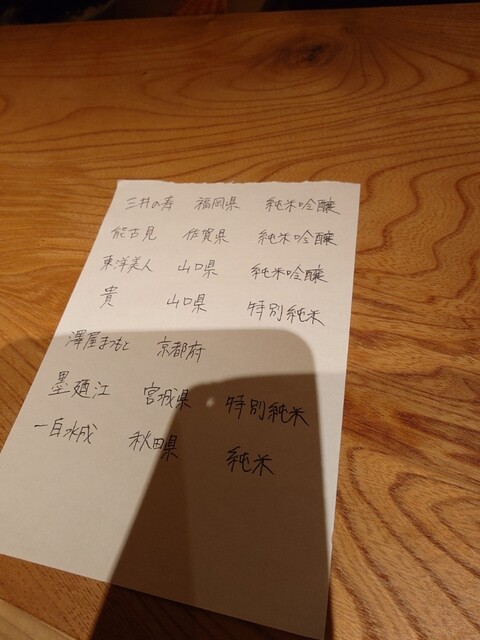 三井の寿 福岡県 純米吟醸
能古見 佐賀県 純米吟醸
東洋美人 山口県 純米吟醸
貴 山口県 特別純米
澤屋まつもと 京都府
墨廼江 宮城県 特別純米
一白水成 秋田県 純米